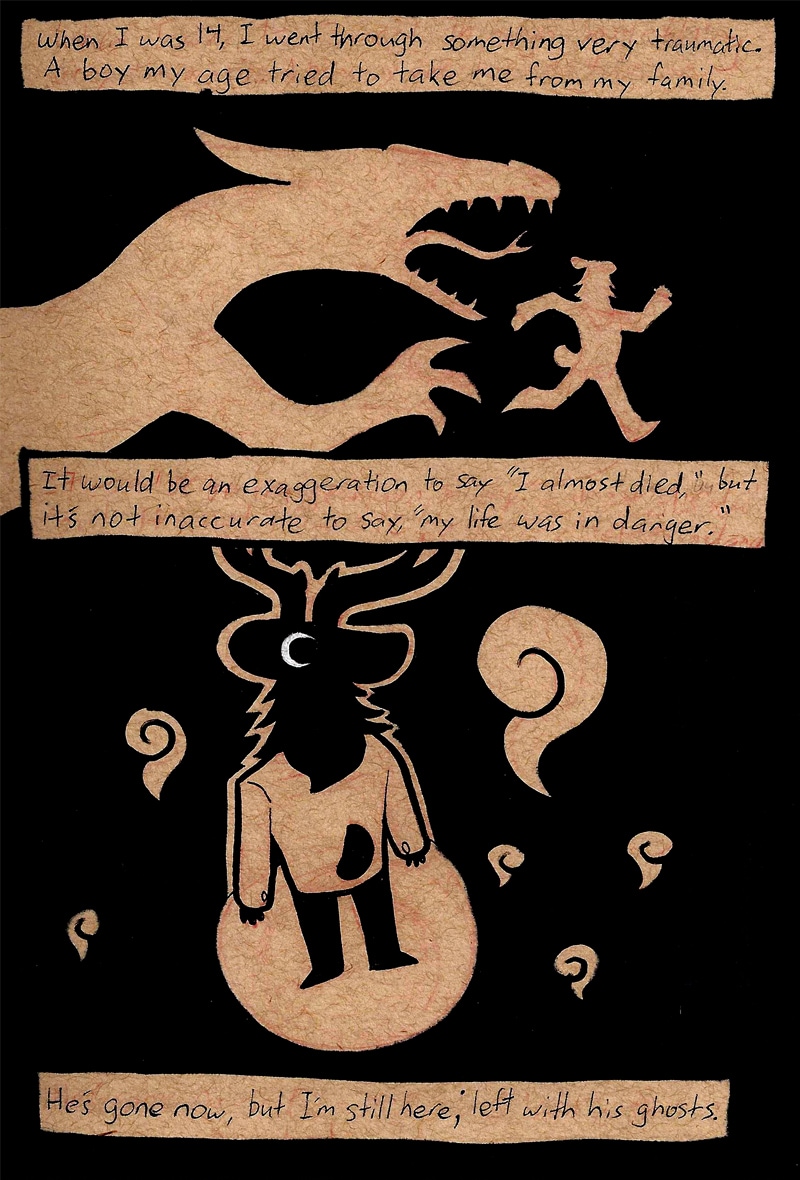 When I was 14, I went through something very traumatic.
A boy my age tried to take me from my family.
It would be an exaggeration to say "I almost died," but
it's not inaccurate to say, "my life was in danger."
He's gone now, but I'm still here; left with his ghosts.